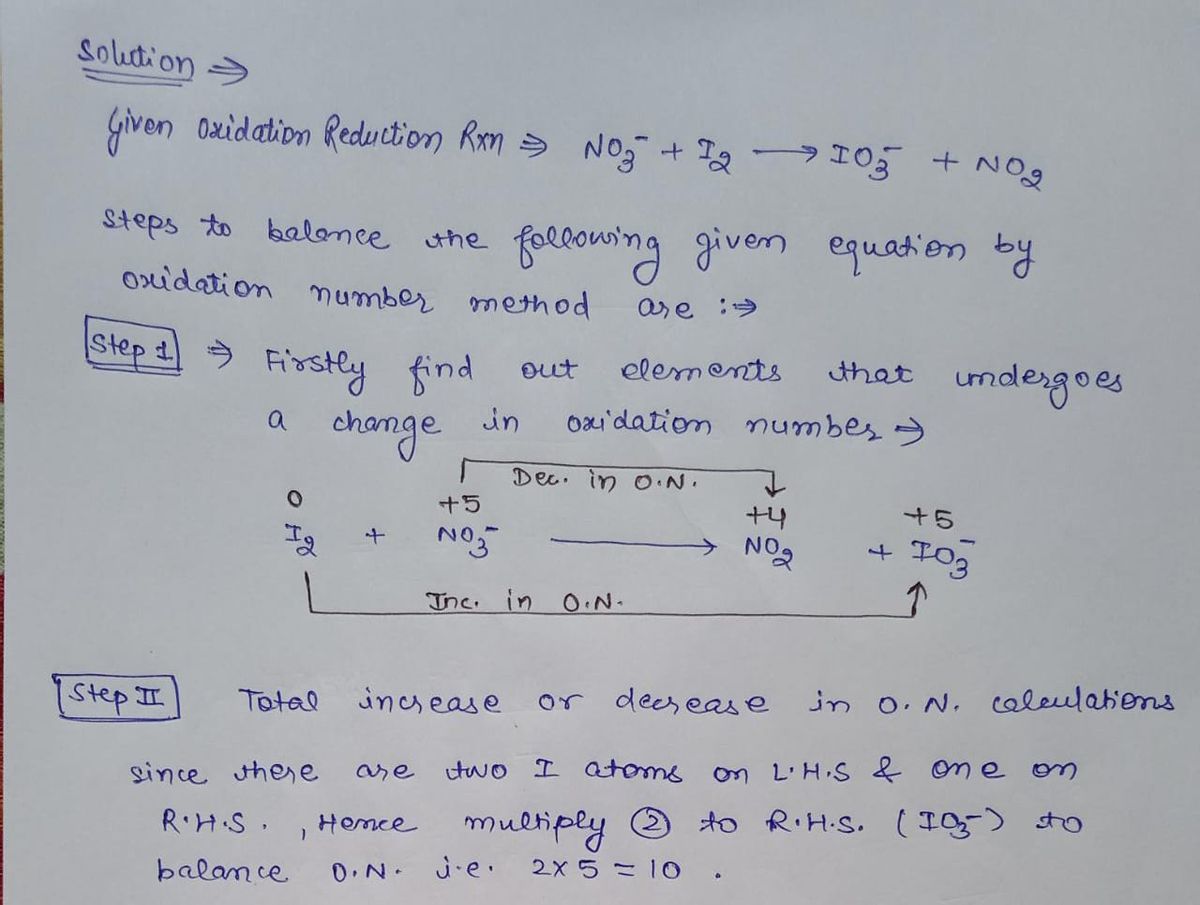 Solution ⇒
Given Oxidation Reduction Rxn ⇒ NO₃⁻ + I₂ ⟶ IO₃⁻ + NO₂
Steps to balance the following given equation by
oxidation number method are :⇒
Step 1 ⇒ Firstly find out elements that undergoes
a change in oxidation number →
Dec. in O.N.
0 +5 +4 +5
I₂ + NO₃⁻ ⟶ NO₂ + IO₃⁻
Inc. in O.N.
Step II Total increase or decrease in O.N. calculations
since there are two I atoms on L.H.S & one on
R.H.S. , Hence multiply ② to R.H.S. (IO₃⁻) to
balance O.N. i.e. 2x5 = 10 .